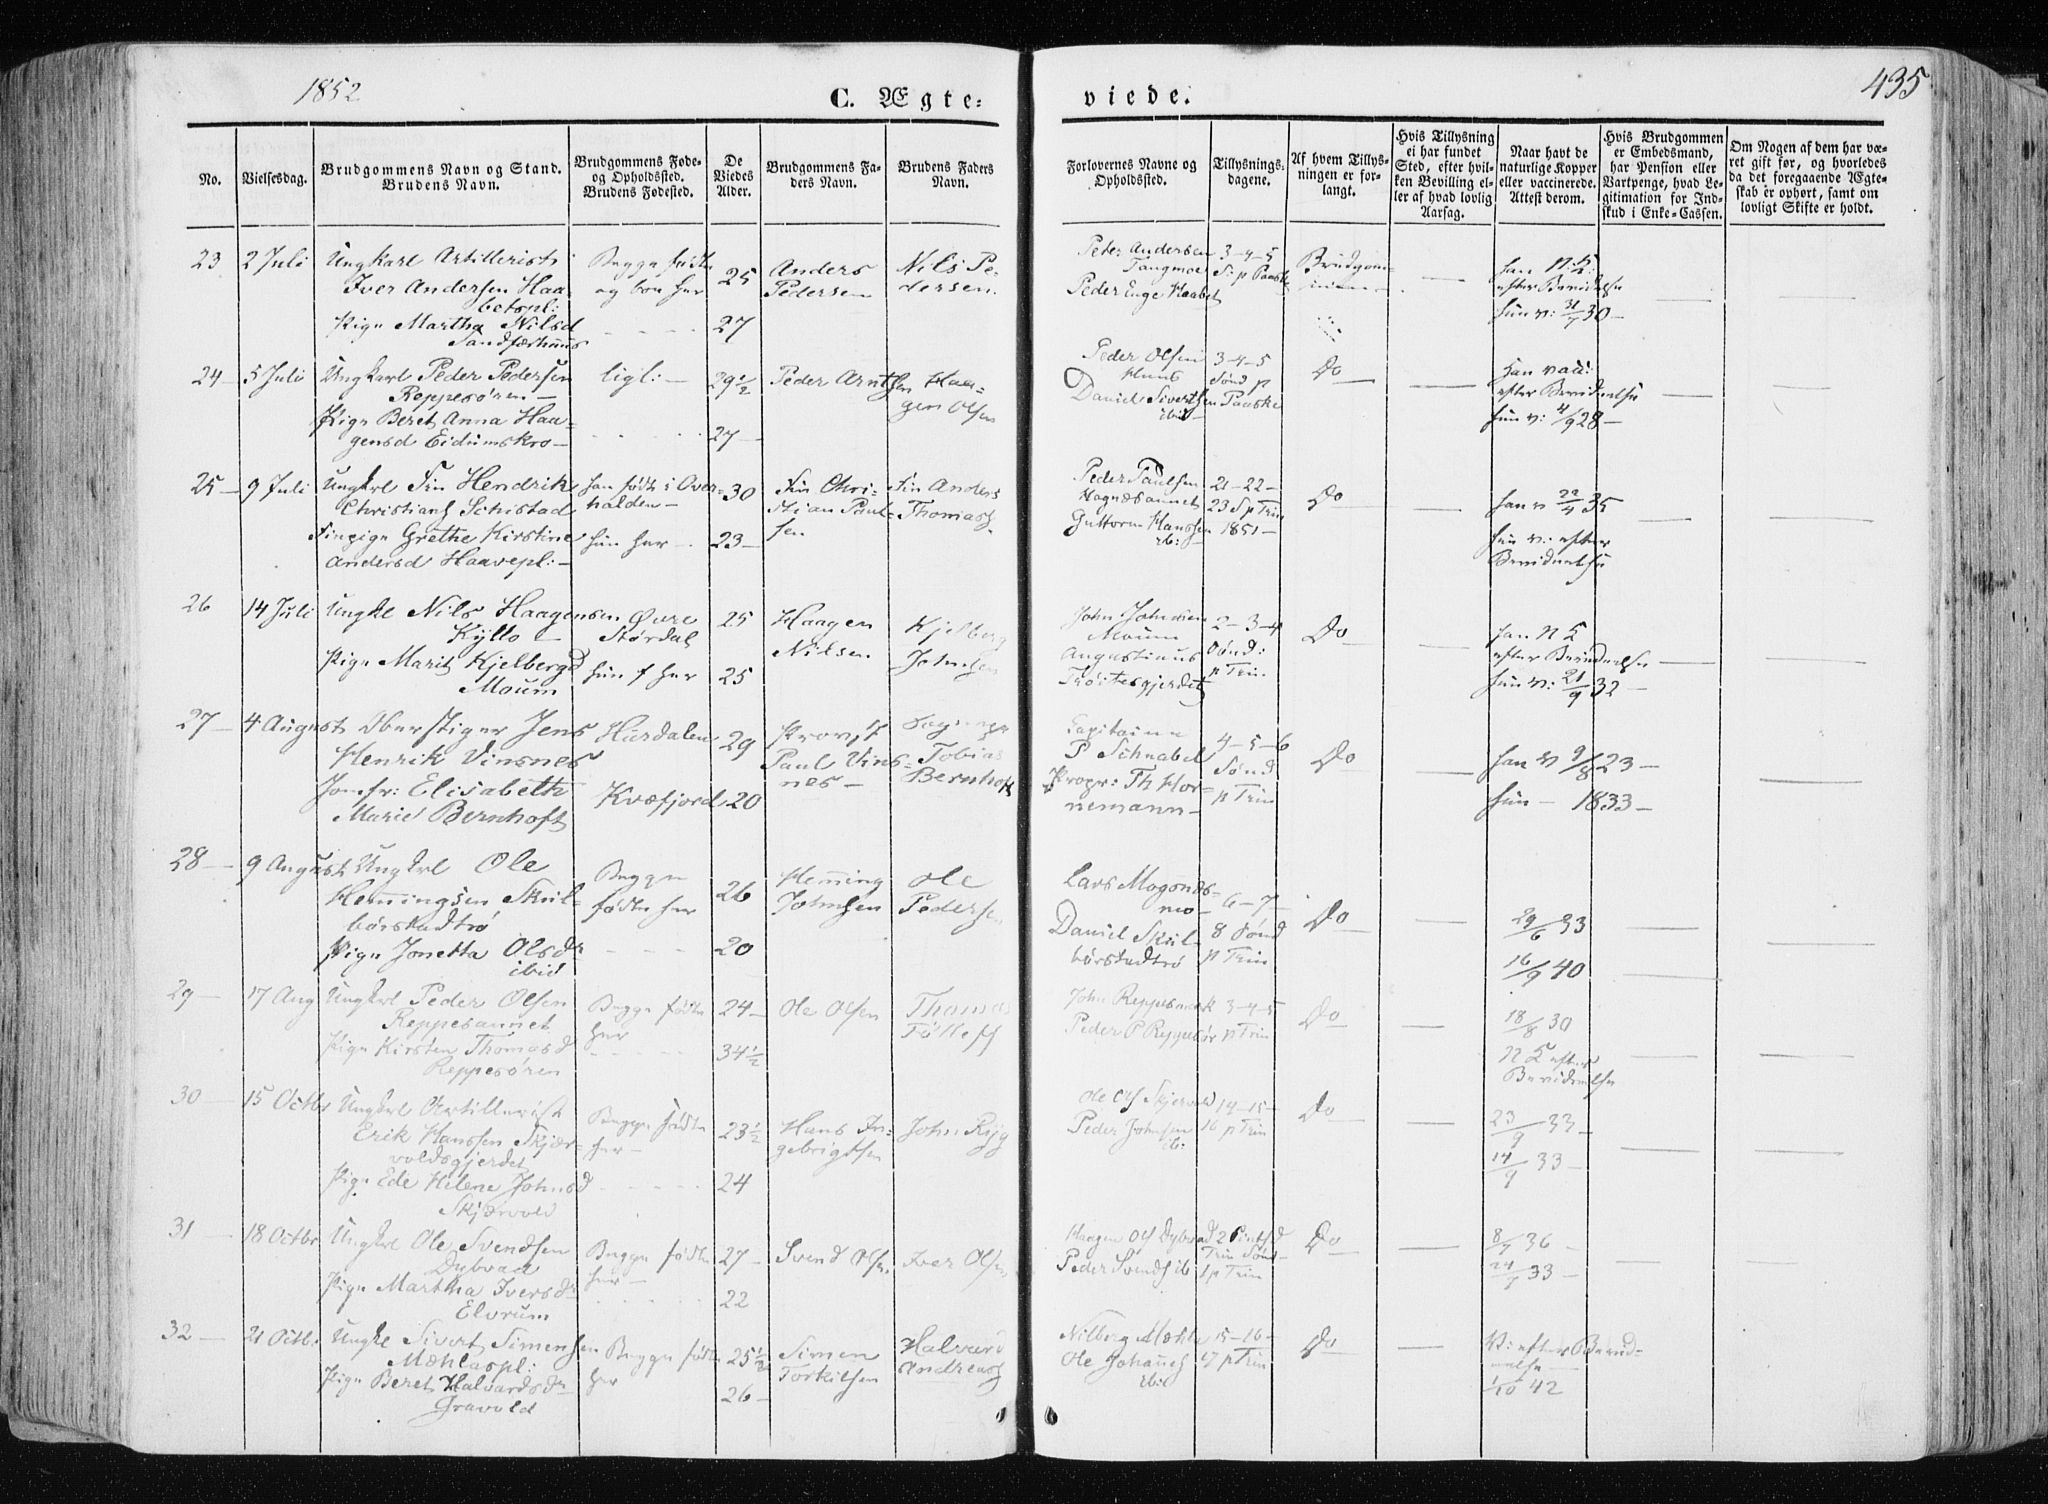 1852
C. Ægte-
viede.
435
No.
Vielsesdag.
Brudgommens Navn og Stand.
Brudens Navn.
Brudgommens Føde-
og Opholdssted.
Brudens Fødested.
De
Viedes
Alder.
Brudgommens Fa-
ders Navn.
Brudens Faders
Navn.
Forlovernes Navne og
Opholdssted.
Tillysnings-
dagene.
Af hvem Tillys-
ningen er for-
langt.
Hvis Tillysning
ei har fundet
Sted, efter hvil-
ken Bevilling el-
ler af hvad lovlig
Aarsag.
Naar havt de
naturlige Kopper
eller vaccinerede.
Attest derom.
Hvis Brudgommen
er Embedsmand,
har Pension eller
Vartpenge, hvad Le-
gitimation for Ind-
skud i Enke-Cassen.
Om Nogen af dem har væ-
ret gift før, og hvorledes
da det foregaaende Ægte-
skab er ophørt, samt om
lovligt Skifte er holdt.
23
2 Juli
Ungkarl Artillerist
Iver Andersen Haa-
betspl:
Pige Martha Nilsd
Sandfærhuus
Begge fødte
og boe her
25
27
Anders
Pedersen
Nils Pe-
dersen
Peter Andersen
Tangmoe
Peder Enge Haabet
3-4-5
S: p Paaske
Brudgom-
men
han N: K:
efter Bevidnelse
hun v: 31/7 30
24
5 Juli
Ungkarl Peder Pedersen
Reppesøren
Pige Beret Anna Haa-
gensd Eidumskro
ligl:
29½
27
Peder Arntsen
Haa-
gen Olsen
Peder Olsen
Huus
Daniel Sivertsen
ibid
3-4-5
Sønd p
Paaske
Do
han vacc:
efter Bevidnelse
hun v: 4/9 28
25
9 Juli
Ungkrl Fin Hendrik
Christians Schistad
Finpige Grethe Kirstine
Andersd Haavepl:
han født i Over-
halden
hun her
30
23
Fin Chri-
stian Paul-
sen
Fin Anders
Thomass
Peder Paulsen
Hognesaunet
Guttorm Hanssen
ib:
21-22-
23 S p Trin
1851
Do
han v 22/4 35
hun v: efter
Bevidnelse
26
14 Juli
Ungkl Nils Haagensen
Kyllo
Pige Marit Kjelbergd
Moum
Øvre
Størdal
hun f her
25
25
Haagen
Nilsen
Kjelberg
Johnsen
John Johnsen
Moum
Augustinus
Trøitesgjerdet
2-3-4
Sønd:
p Trin
Do
han N K
efter Bevidnelse
hun v: 21/9 32
27
4 August
Oberstiger Jens
Henrik Vinsnes
Jomfr: Elisabeth
Marie Bernhoft
Hurdalen
Kvæfjord
29
20
Provst
Paul Vins-
nes
Tobias
Bernhoft
Capitaine
P Schnabel
Propr: Th Hor-
nemann
4-5-6
Sønd
p Trin
Do
han v 9/8 23
hun - 1833
28
9 August
Ungkrl Ole
Hemmingsen Skul-
børstadtrø
Pige Jonetta Olsdr
ibid
Begge
fødte her
26
20
Hemming
Johnsen
Ole
Pedersen
Lars Mogsnes-
mo
Daniel Skul-
børstadtrø
6-7-
8 Sønd
p Trin
Do
29/6 33
16/9 40
29
17 Aug
Ungkrl Peder Olsen
Reppesaunet
Pige Kirsten Thomasd
Reppesøren
Begge fødte
her
24
34½
Ole Olsen
Thomas
John Reppesmark
Peder P Reppesør
3-4-5
p Trin
Do
18/8 30
N K efter
Bevidnelse
30
15 Octbr
Ungkrl Artillerist
Erik Hanssen Skjær-
voldsgjerdet
Pige Ede Helene Johnsd
Skjærvold
Begge fødte
her
23½
24
Hans In-
gebrigtsen
John Ryg
Ole Ols Skjervold
Peder Johnsen
ib:
14-15-
16 p Trin
Do
23/9 33
14/9 33
31
18 Octbr
Ungkrl Ole Svendsen
Dybvad
Pige Martha Iversdr
Elvrum
Begge fødte
her
27
22
Svend Olsen
Iver Olsen
Haagen Ols Dybvad
Peder Svends ib
Trin Sønd
1 p Trin
Do
8/7 36
33
32
21 Octbr
Ungkl Sivert Simensen
Mæhlaspl:
Pige Beret Halvardsdr
Gravold
Begge fødte
her
25½
26
Simen
Torkilsen
Halvard
Andreass
Nilberg Mæhle
Ole Johannes
ib:
15-16-
17 p Trin
Do
V: efter Bevid-
nelse
1/10 42